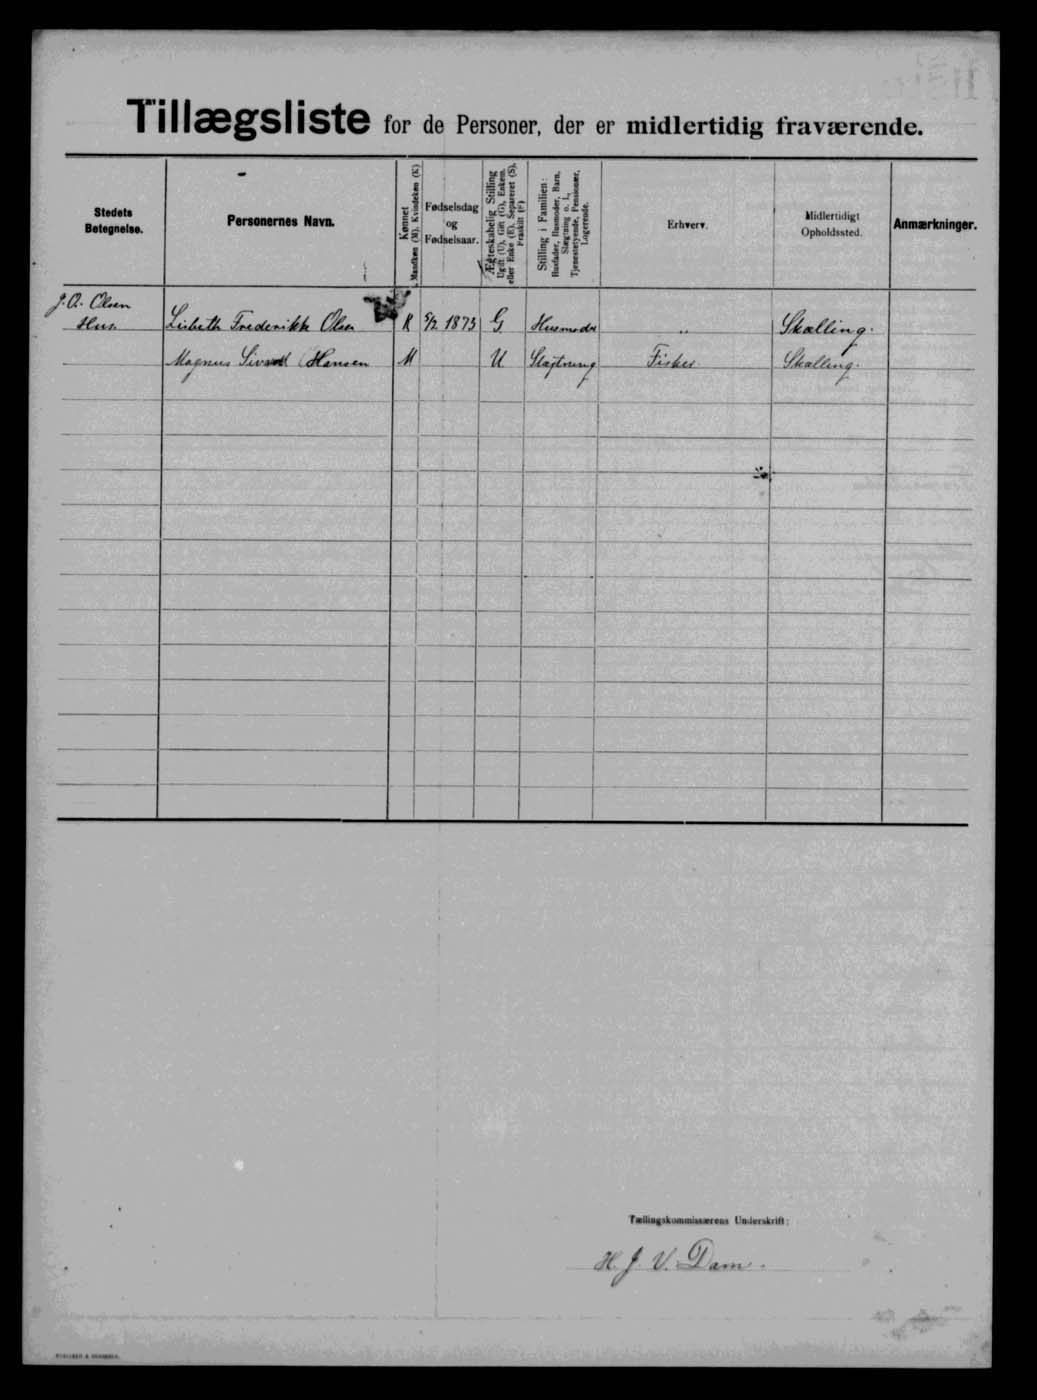 Tillægsliste for de Personer, der er midlertidig fraværende.
Stedets Betegnelse.
Personernes Navn.
Kønnet Mandkøn (M). Kvindekøn (K)
Fødselsdag og Fødselsaar.
Ægteskabelig Stilling Ugift (U), Gift (G), Enkem. eller Enke (E), Separeret (S), Fraskilt (F)
Stilling i Familien: Husfader, Husmoder, Barn, Slægtning o. l., Tjenestetyende, Pensionær, Logerende.
Erhverv.
Midlertidigt Opholdssted.
Anmærkninger.
J. O. Olsen
Hus Lisbeth Frederikke Olsen K 5/2 1873 G Husmoder " Skælling.
Magnus Hansen M U Slægtning Fisker. Skælling.
Tællingskommissærens Underskrift:
H. J. V. Dam.